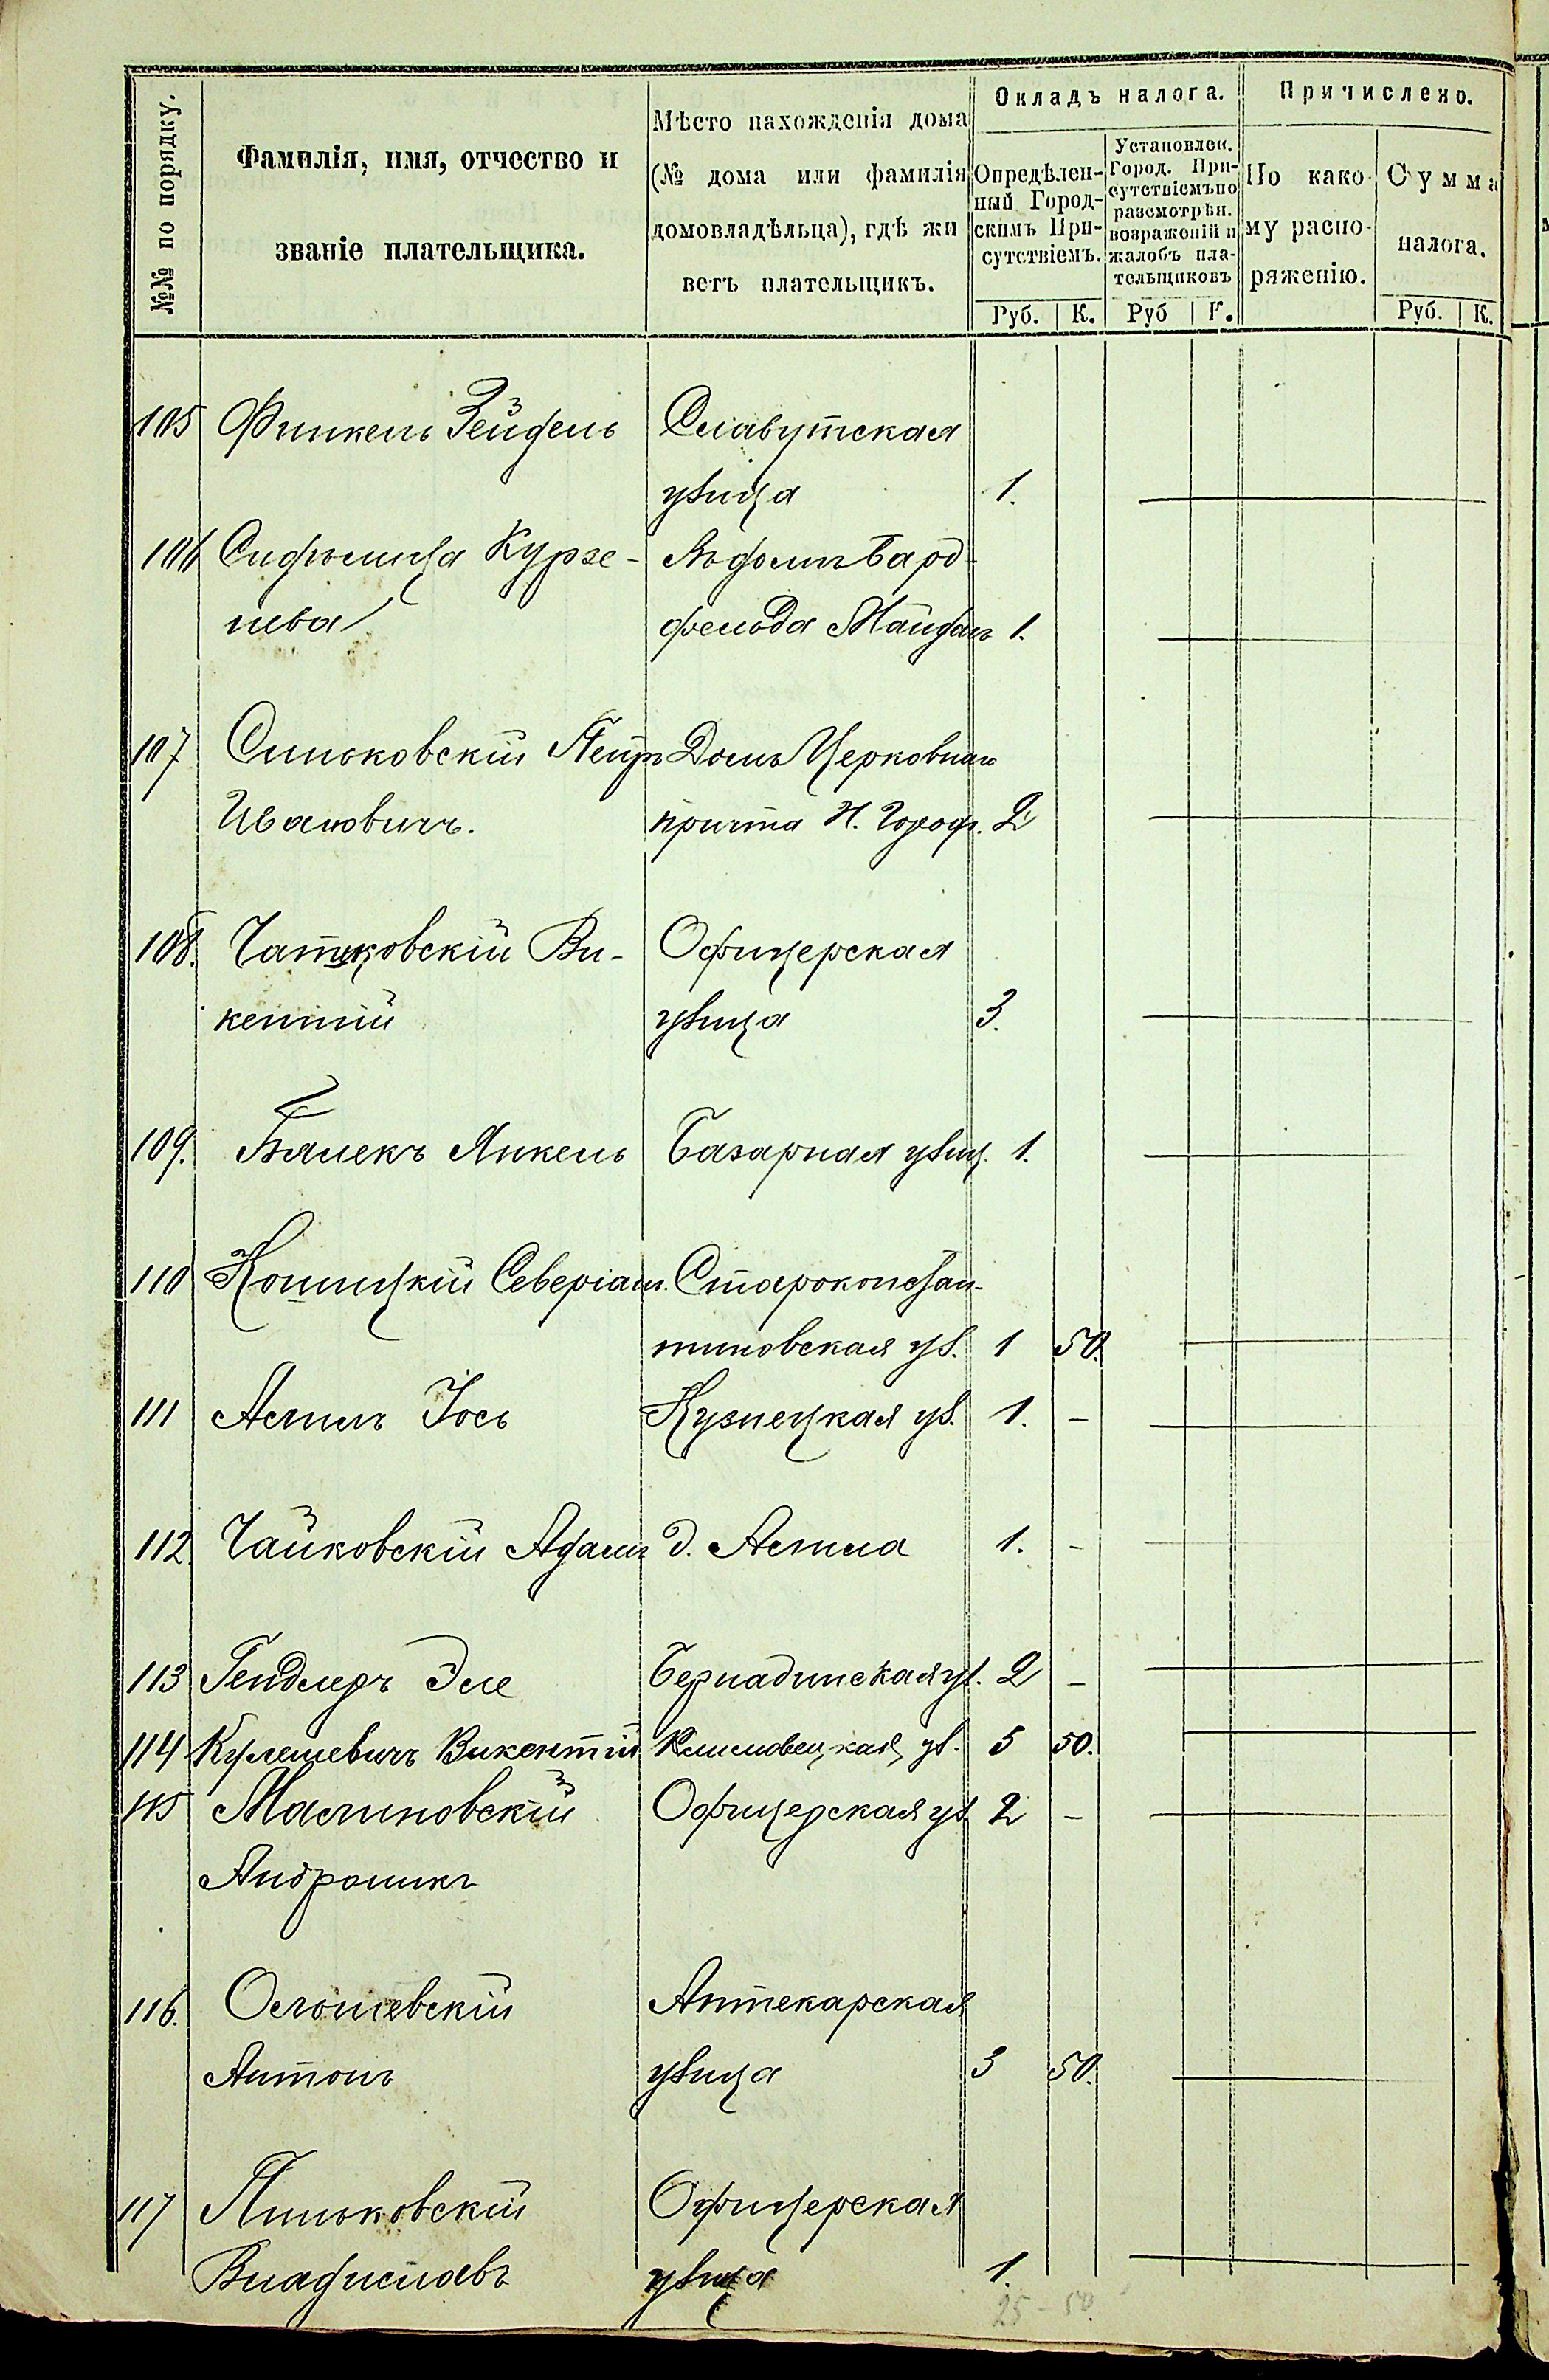 №№ по порядку.
Фамилія, имя, отчество и
званіе плательщика.
Мѣсто нахожденія дома
(№ дома или фамилія
домовладѣльца), гдѣ жи
ветъ плательщикъ.
Окладъ налога.
Опредѣлен-
ный Город-
скимъ При-
сутствіемъ.
Установлен.
Город. При-
сутствіемъ по
разсмотрѣн.
возраженій и
жалобъ пла-
тельщиковъ
Причислено.
По како-
му распо-
ряженію.
Сумма
налога.
Руб. К. Руб К. Руб. К.
105 Финкель Зейдель Славутская
улица 1.
106 Сидѣлица Курзе-
нева
фельда Майдан 1.
107 Синьковскій Петръ Домъ Церковнаго
Ивановичъ. причта Н. Город. 2
108. Чатковскій Ви- Офицерская
кентій улица 3.
109. Бялекъ Янкель Базарная улиц. 1.
110 Копицкій Северіан. Староконстан-
тиновская ул. 1 50.
111 Аспись Іось Кузнецкая ул. 1. -
112 Чайковскій Адамъ д. Асписа 1. -
113 Гендлеръ Эле Бернадинская ул. 2 -
114 Кулешевичъ Викентій ул. 5 50.
115 Малиновскій Офицерская ул. 2 -
Андроникъ
116. Ольшевскій Аптекарская
Антонъ улица 3 50.
117 Пиньковскій Офицерская
Владиславъ улица 1.
25 - 50.